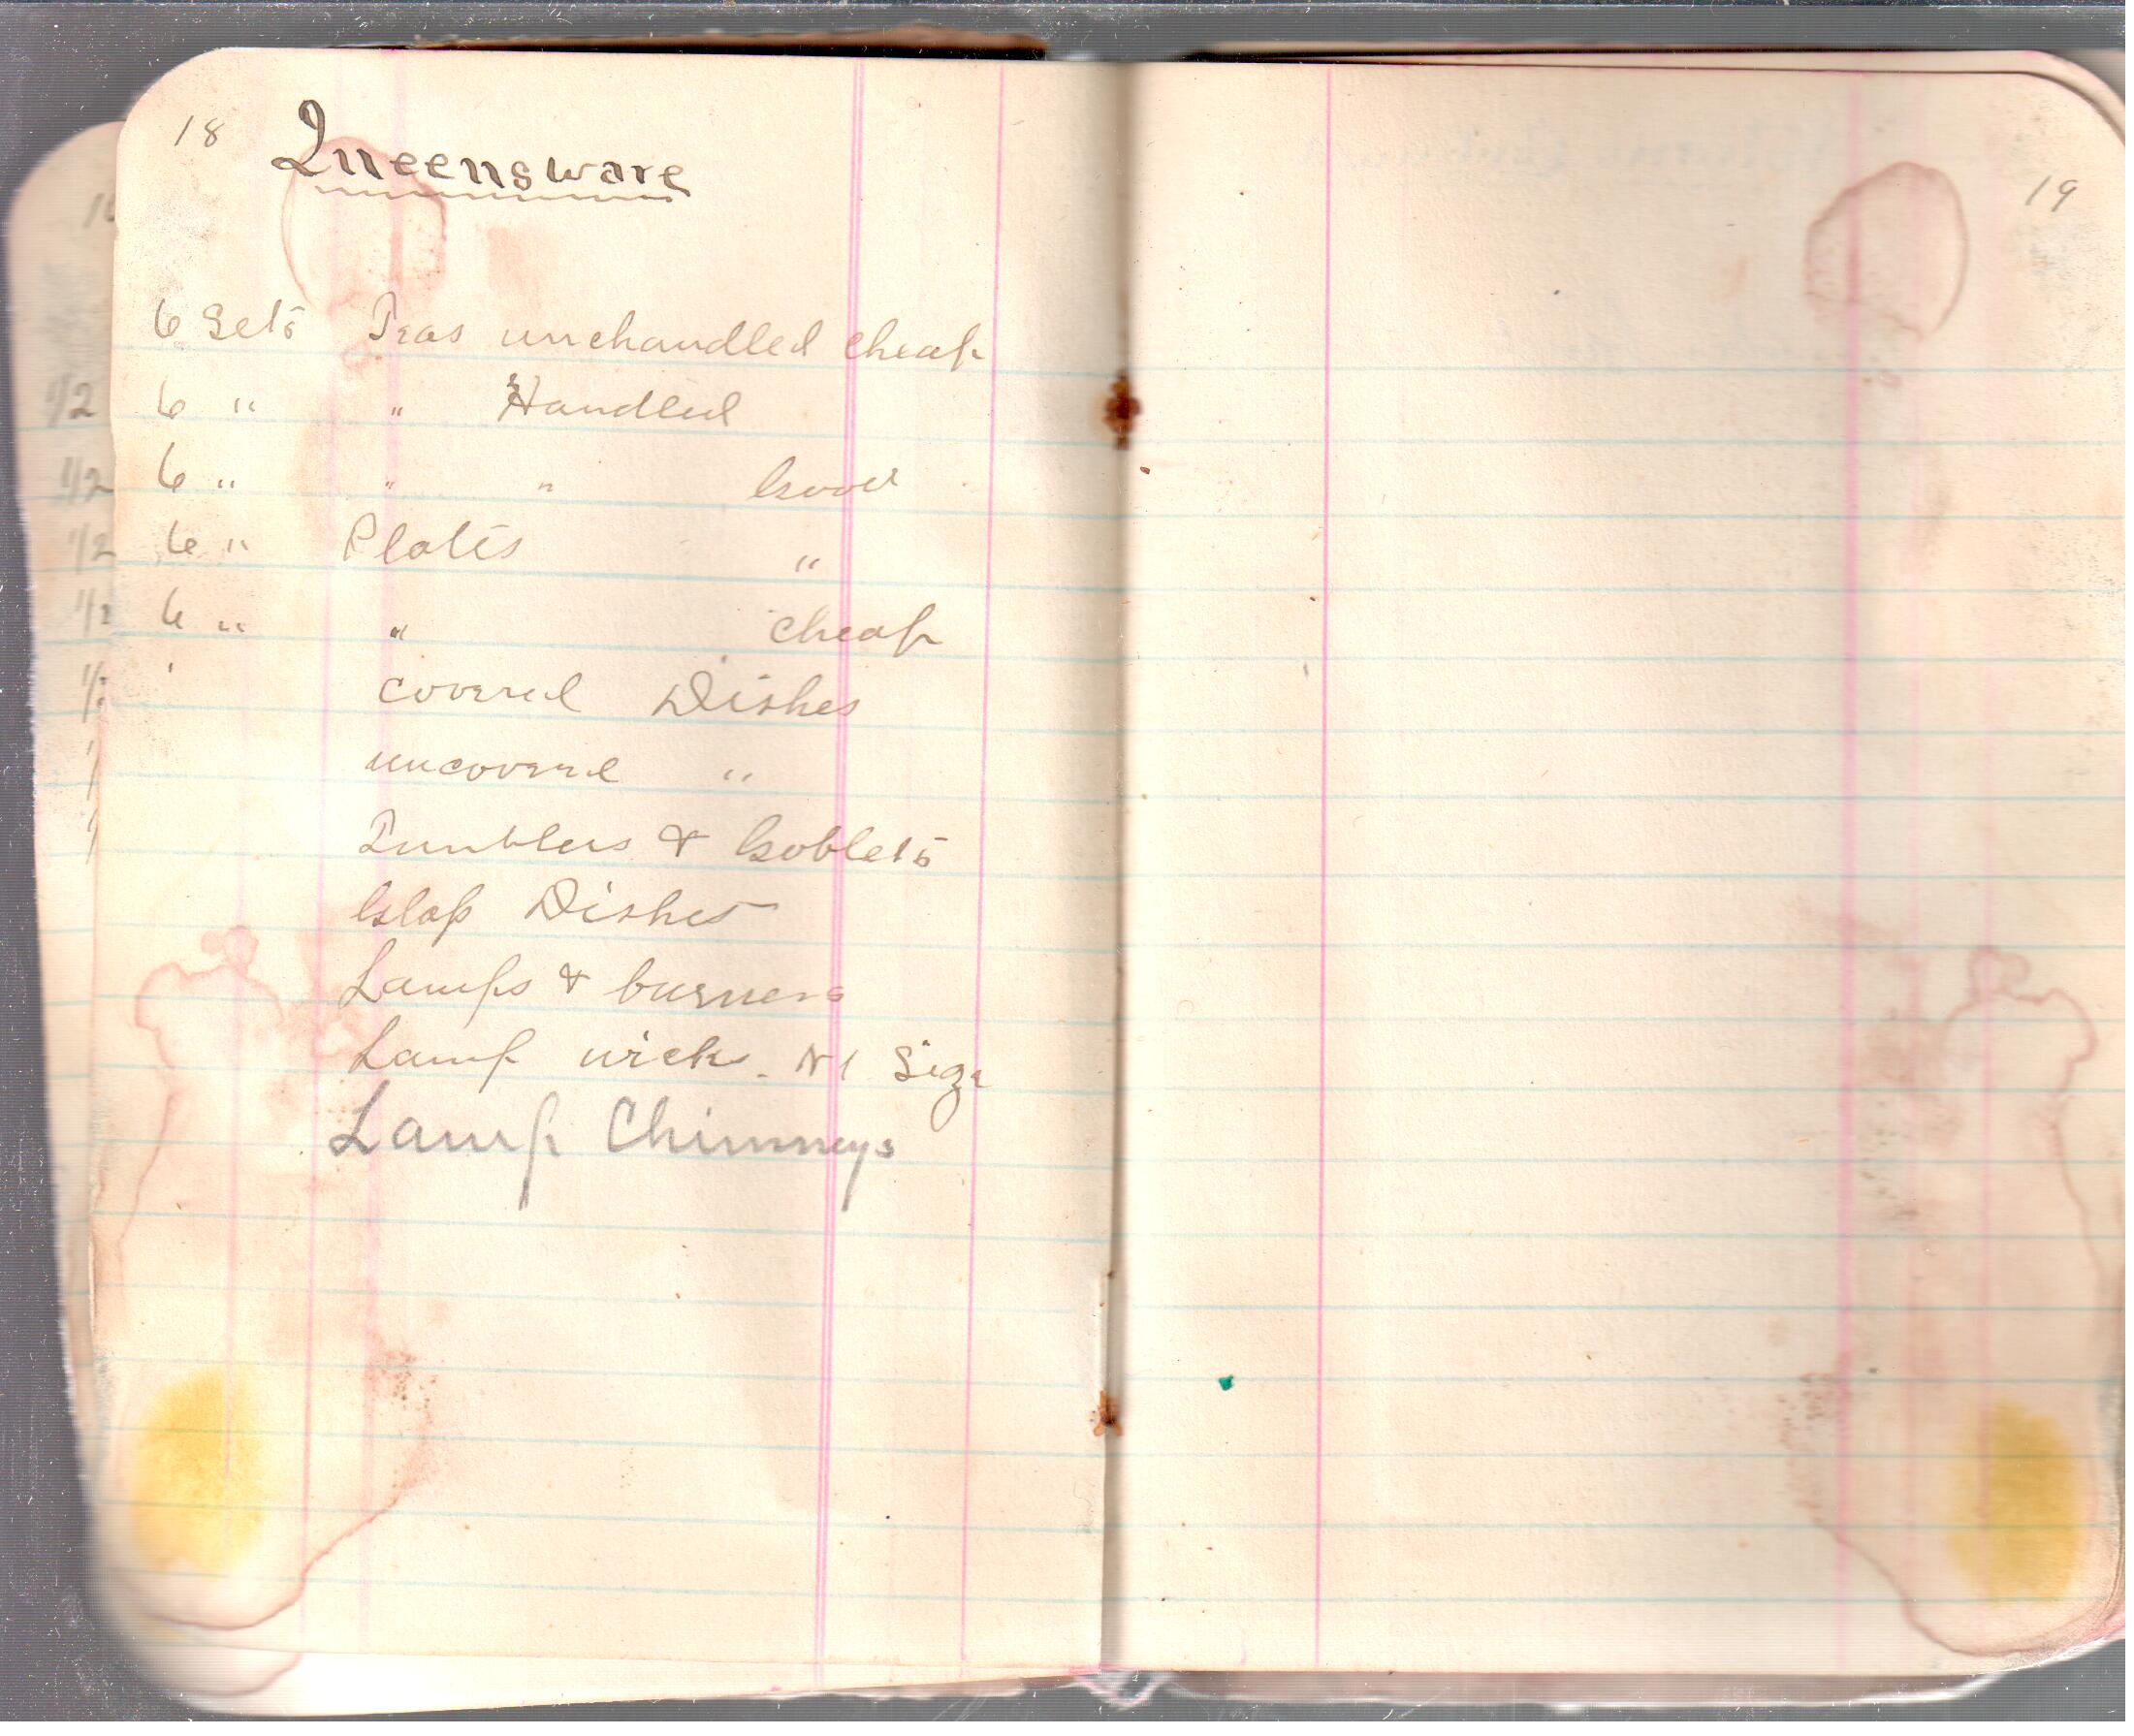 18
Queensware
6 Sets Teas unhandled cheap
6 " " Handled
6 " " " Good
6 " Plates "
6 " " cheap
covered Dishes
uncovered "
Tumblers & Goblets
Slop Dishes
Lamps & burners
Lamp wicks. N1 Size
Lamp Chimneys
19
1/2
1/2
1/2